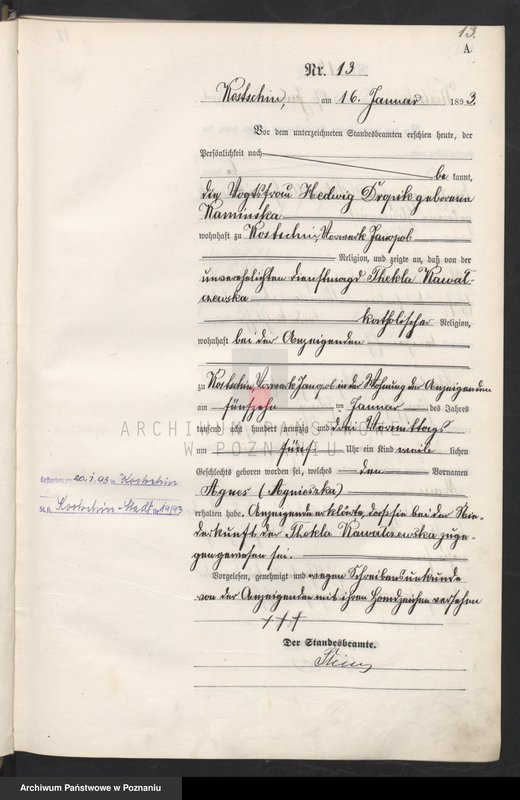 13.
A.
Nr. 13
Kostschin, am 16. Januar 1893.
Vor dem unterzeichneten Standesbeamten erschien heute, der
Persönlichkeit nach
be kannt,
die Vogtsfrau Hedwig Drquik geborene
Kaminska
wohnhaft zu Kostschin, Vorwerk Janopol
Religion, und zeigte an, daß von der
unverehelichten Dienstmagd Thekla Kawal-
czewska
katholischer Religion,
wohnhaft bei der Anzeigenden
zu Kostschin, Vorwerk Janopol in der Wohnung der Anzeigenden
am fünfzehn ten Januar des Jahres
tausend acht hundert neunzig und drei Vormittags
um fünf Uhr ein Kind weib lichen
Geschlechts geboren worden sei, welches den Vornamen
Agnes (Agnieszka)
erhalten habe. Anzeigende erklärte, dass sie bei der Nie-
derkunft der Thekla Kawalczewska zuge-
gen gewesen sei.
Vorgelesen, genehmigt und wegen Schreibensunkunde
von der Anzeigenden mit ihren Handzeichen versehen
+++
Der Standesbeamte.
Gestorben 20.I.93 in Kostschin
St. A. Kostschin-Stadt 14/93
ARCHIWUM PAŃSTWOWE
W POZNANIU
Archiwum Państwowe w Poznaniu